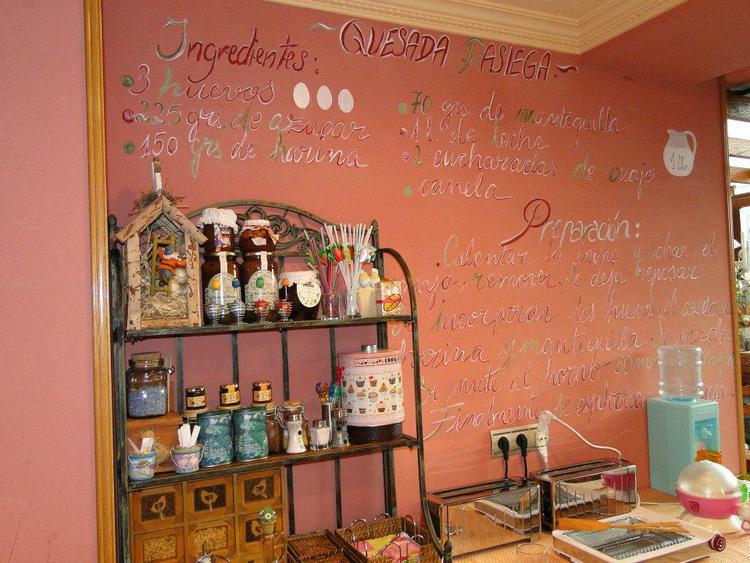 ~ QUESADA PASIEGA ~
Ingredientes:
3 huevos
225 grs. de azucar
150 grs de harina
70 grs. de mantequilla
1 l. de leche
2 cucharadas de cuajo
canela
1 litro
Preparación:
Calentar la leche y echar el
cuajo, remover. Se deja reposar
incorporar los huevos, el azucar
harina y mantequilla. Se mezcla
Se mete al horno
Finalmente Se espolvorea